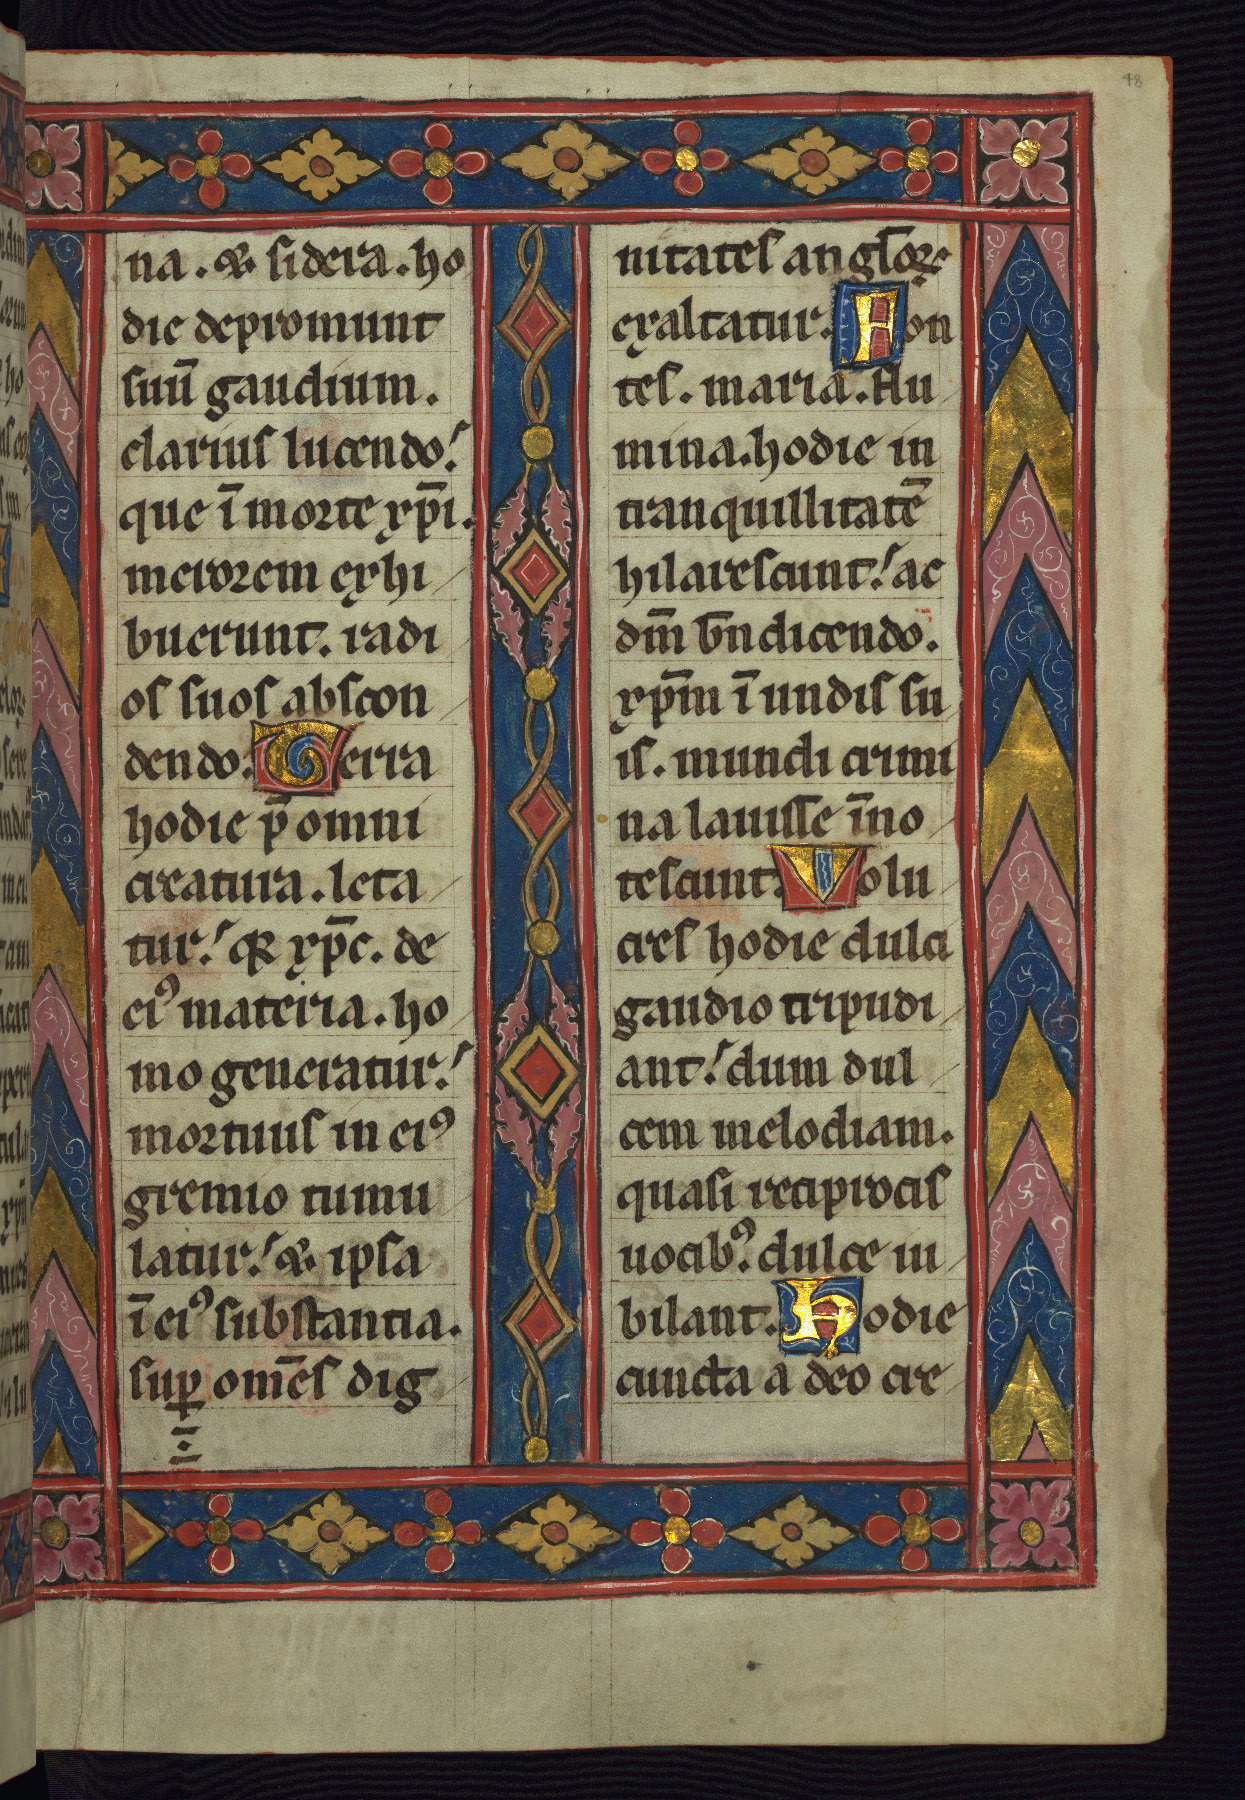 48
na. & sidera. ho
die depromunt
suū gaudium.
clarius lucendo!
que ī morte xp̄i.
merorem exhi
buerunt. radi
os suos abscon
dendo. Terra
hodie p̄ omni
creatura. leta
tur! qꝛ xp̄c. de
eiꝰ materia. ho
mo generatur!
mortuus in eiꝰ
gremio tumu
latur! & ipsa
ī eiꝰ substantia.
suꝑ om̄es dig
nitates anglōꝝ
exaltatur. Fon
tes. maria. flu
mina. hodie in
tranquillitatē
hilarescunt! ac
dm̄ bn̄dicendo.
xp̄m ī undis su
is. mundi crimi
na lauisse īno
tescunt. Volu
cres hodie dulci
gaudio tripudi
ant! dum dul
cem melodiam.
quasi reciprocis
uocibꝰ. dulce iu
bilant. Hodie
cuncta a deo cre